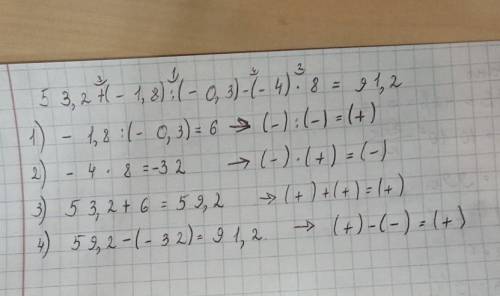 3 1 4 3
53,2+(-1,8):(-0,3)-(-4)·8 = 91,2
1) -1,8:(-0,3)=6 → (-):(-)=(+)
2) -4·8=-32 → (-)·(+)=(-)
3) 53,2+6=59,2 → (+)+(+)=(+)
4) 59,2-(-32)=91,2. → (+)-(-)=(+)